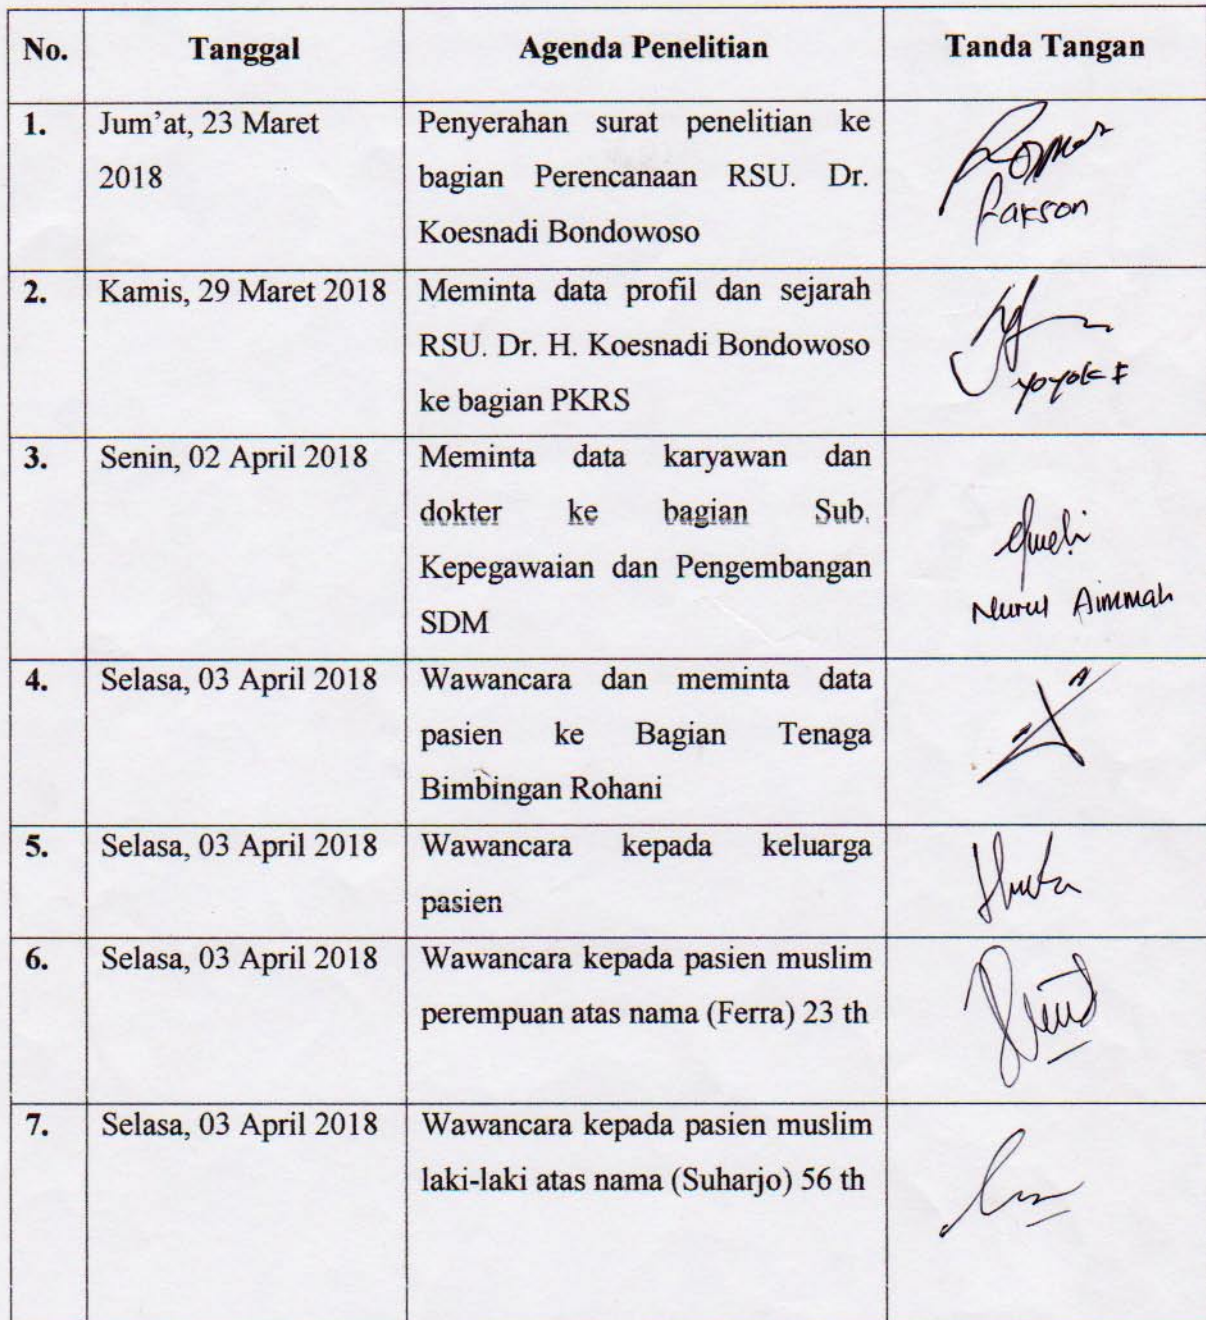 No. Tanggal Agenda Penelitian Tanda Tangan
1. Jum'at, 23 Maret Penyerahan surat penelitian ke
2018 bagian Perencanaan RSU. Dr.
Koesnadi Bondowoso
2. Kamis, 29 Maret 2018 Meminta data profil dan sejarah
RSU. Dr. H. Koesnadi Bondowoso
ke bagian PKRS
3. Senin, 02 April 2018 Meminta data karyawan dan
dokter ke bagian Sub.
Kepegawaian dan Pengembangan
SDM
Nurul Aimmah
4. Selasa, 03 April 2018 Wawancara dan meminta data
pasien ke Bagian Tenaga
Bimbingan Rohani
5. Selasa, 03 April 2018 Wawancara kepada keluarga
pasien
6. Selasa, 03 April 2018 Wawancara kepada pasien muslim
perempuan atas nama (Ferra) 23 th
7. Selasa, 03 April 2018 Wawancara kepada pasien muslim
laki-laki atas nama (Suharjo) 56 th